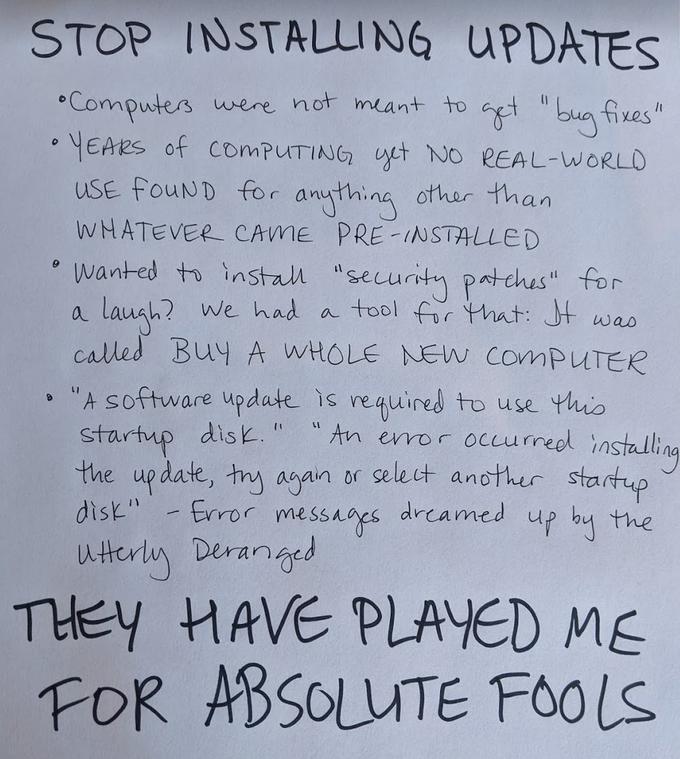 STOP INSTALLING UPDATES
• Computers were not meant to get "bug fixes"
• YEARS of COMPUTING yet NO REAL-WORLD
USE FOUND for anything other than
WHATEVER CAME PRE-INSTALLED
• Wanted to install "security patches" for
a laugh? We had a tool for that: It was
called BUY A WHOLE NEW COMPUTER
• "A software update is required to use this
startup disk." "An error occurred installing
the update, try again or select another startup
disk" - Error messages dreamed up by the
Utterly Deranged
THEY HAVE PLAYED ME
FOR ABSOLUTE FOOLS